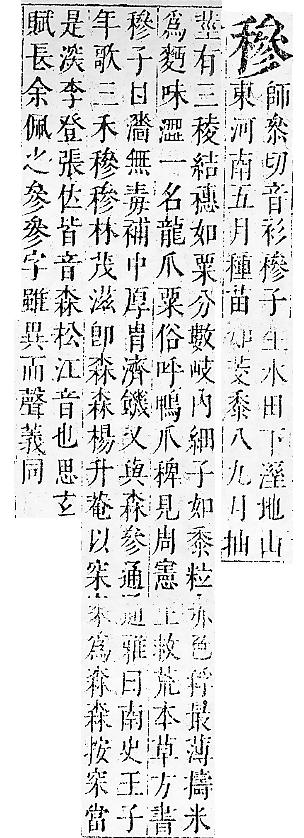 穇
師叅切音衫穇子生水田下溼地山
東河南五月種苗如茭黍八九月抽
莖有三稜結穗如粟分數岐內細子如黍粒赤色稃最薄擣米
爲麪味澀一名龍爪粟俗呼鴨爪稗見周憲王救荒本草方書
穇子曰濇無毒補中厚胃濟饑又與森參通通雅曰南史王子
年歌三禾穇穇林茂滋卽森森楊升菴以穼爲森森按穼當
是㴱李登張位皆音森松江音也思玄
賦長余佩之參參字雖異而聲義同